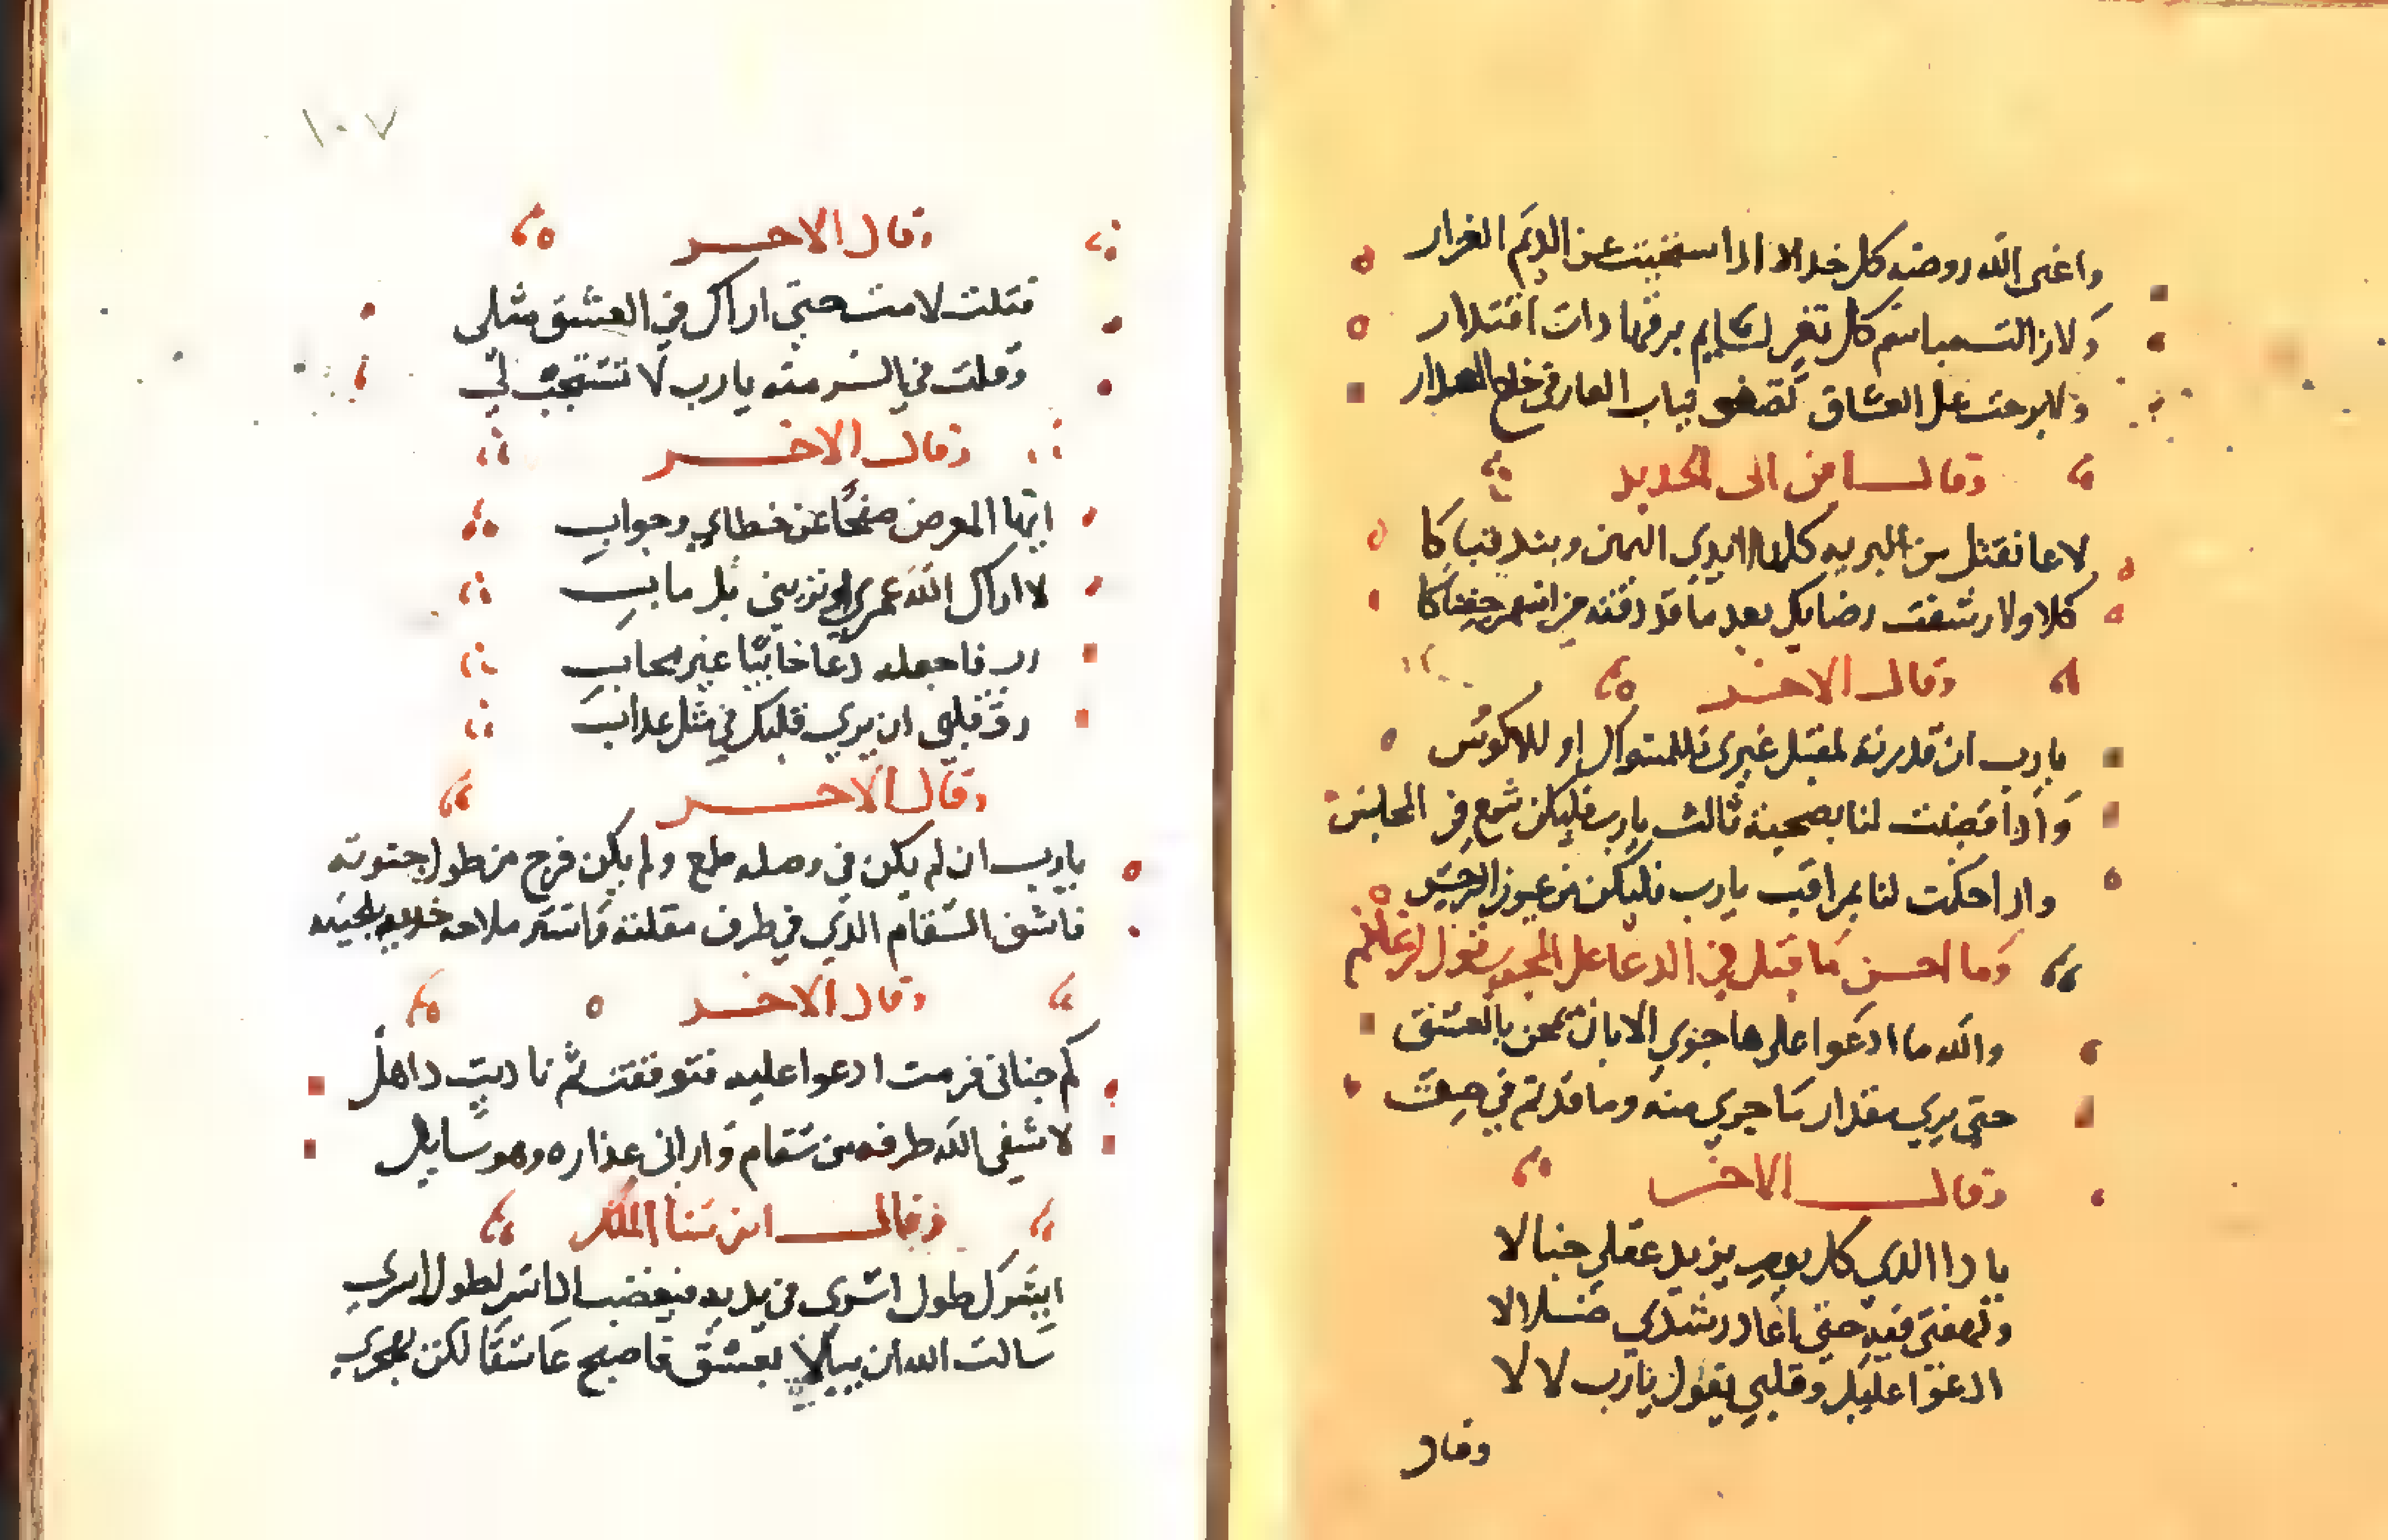 واغنى الله روضه كل خد الا اذا استغنيت عن الديم الغزار
ولازالت مباسم كل ثغر لشايم برقها ذات افتدار
ولابرحت على العشاق تصفو ثياب العار في خلع العذار
وقال ابن ابى الحديد
لا عانقتك من البريه كلها ايدي سوى اليمن وبند قباكا
كلا ولا رشفت رضابك بعد ما قد ذقته من اسهم جفناكا
وقال الاخر
يارب ان قدرته لمقبل غيري فللمسواك او للاكوس
واذا قضيت لنا بصحبة ثالث يارب فليكن شمع في المجلس
واذا حكمت لنا بمراقب يارب فليكن من عيون النرجس
وما احسن ما قيل في الدعا على المحبوب
والله ما ادعوا على هاجري الا بان يمحن بالعشق
حتى يري مقدار ما جري منه وما قد تم في حقى
وقال الاخر
يا ذا الذي كل يوم يزيد عقلي خبالا
ولهفتى فيه حتى اعاد رشدي ضلالا
ادعوا عليك وقلبي يقول يارب لا لا
وقال
١٠٧
وقال الاخر
فقلت لا مت حتى اراك في العشق مثلى
وقلت في السر منه يارب لا تستجب لي
وقال الاخر
ايها المعرض صفحا عن خطابي وجوابي
لا اراك الله عمري او تزيني بل ما بي
رب فاجعله دعا خايبا غير مجاب
رق قلبي ان يري قلبك في مثل عذابي
وقال الاخر
يارب ان لم يكن في وصله طمع ولم يكن فرج من طول جفوته
فاشف السقام الذي في طرف مقلته واستر ملاحة خديه بلحيته
وقال الاخر
كم جفانى فرمت ادعوا عليه فتوقفت ثم ناديت ذاهل
لا شفى الله طرفه من سقام وارانى عذاره وهو سايل
وقال ابن سنا الملك
سالت الله ان يبلا بعشق فاصبح عاشقا لكن لهجري